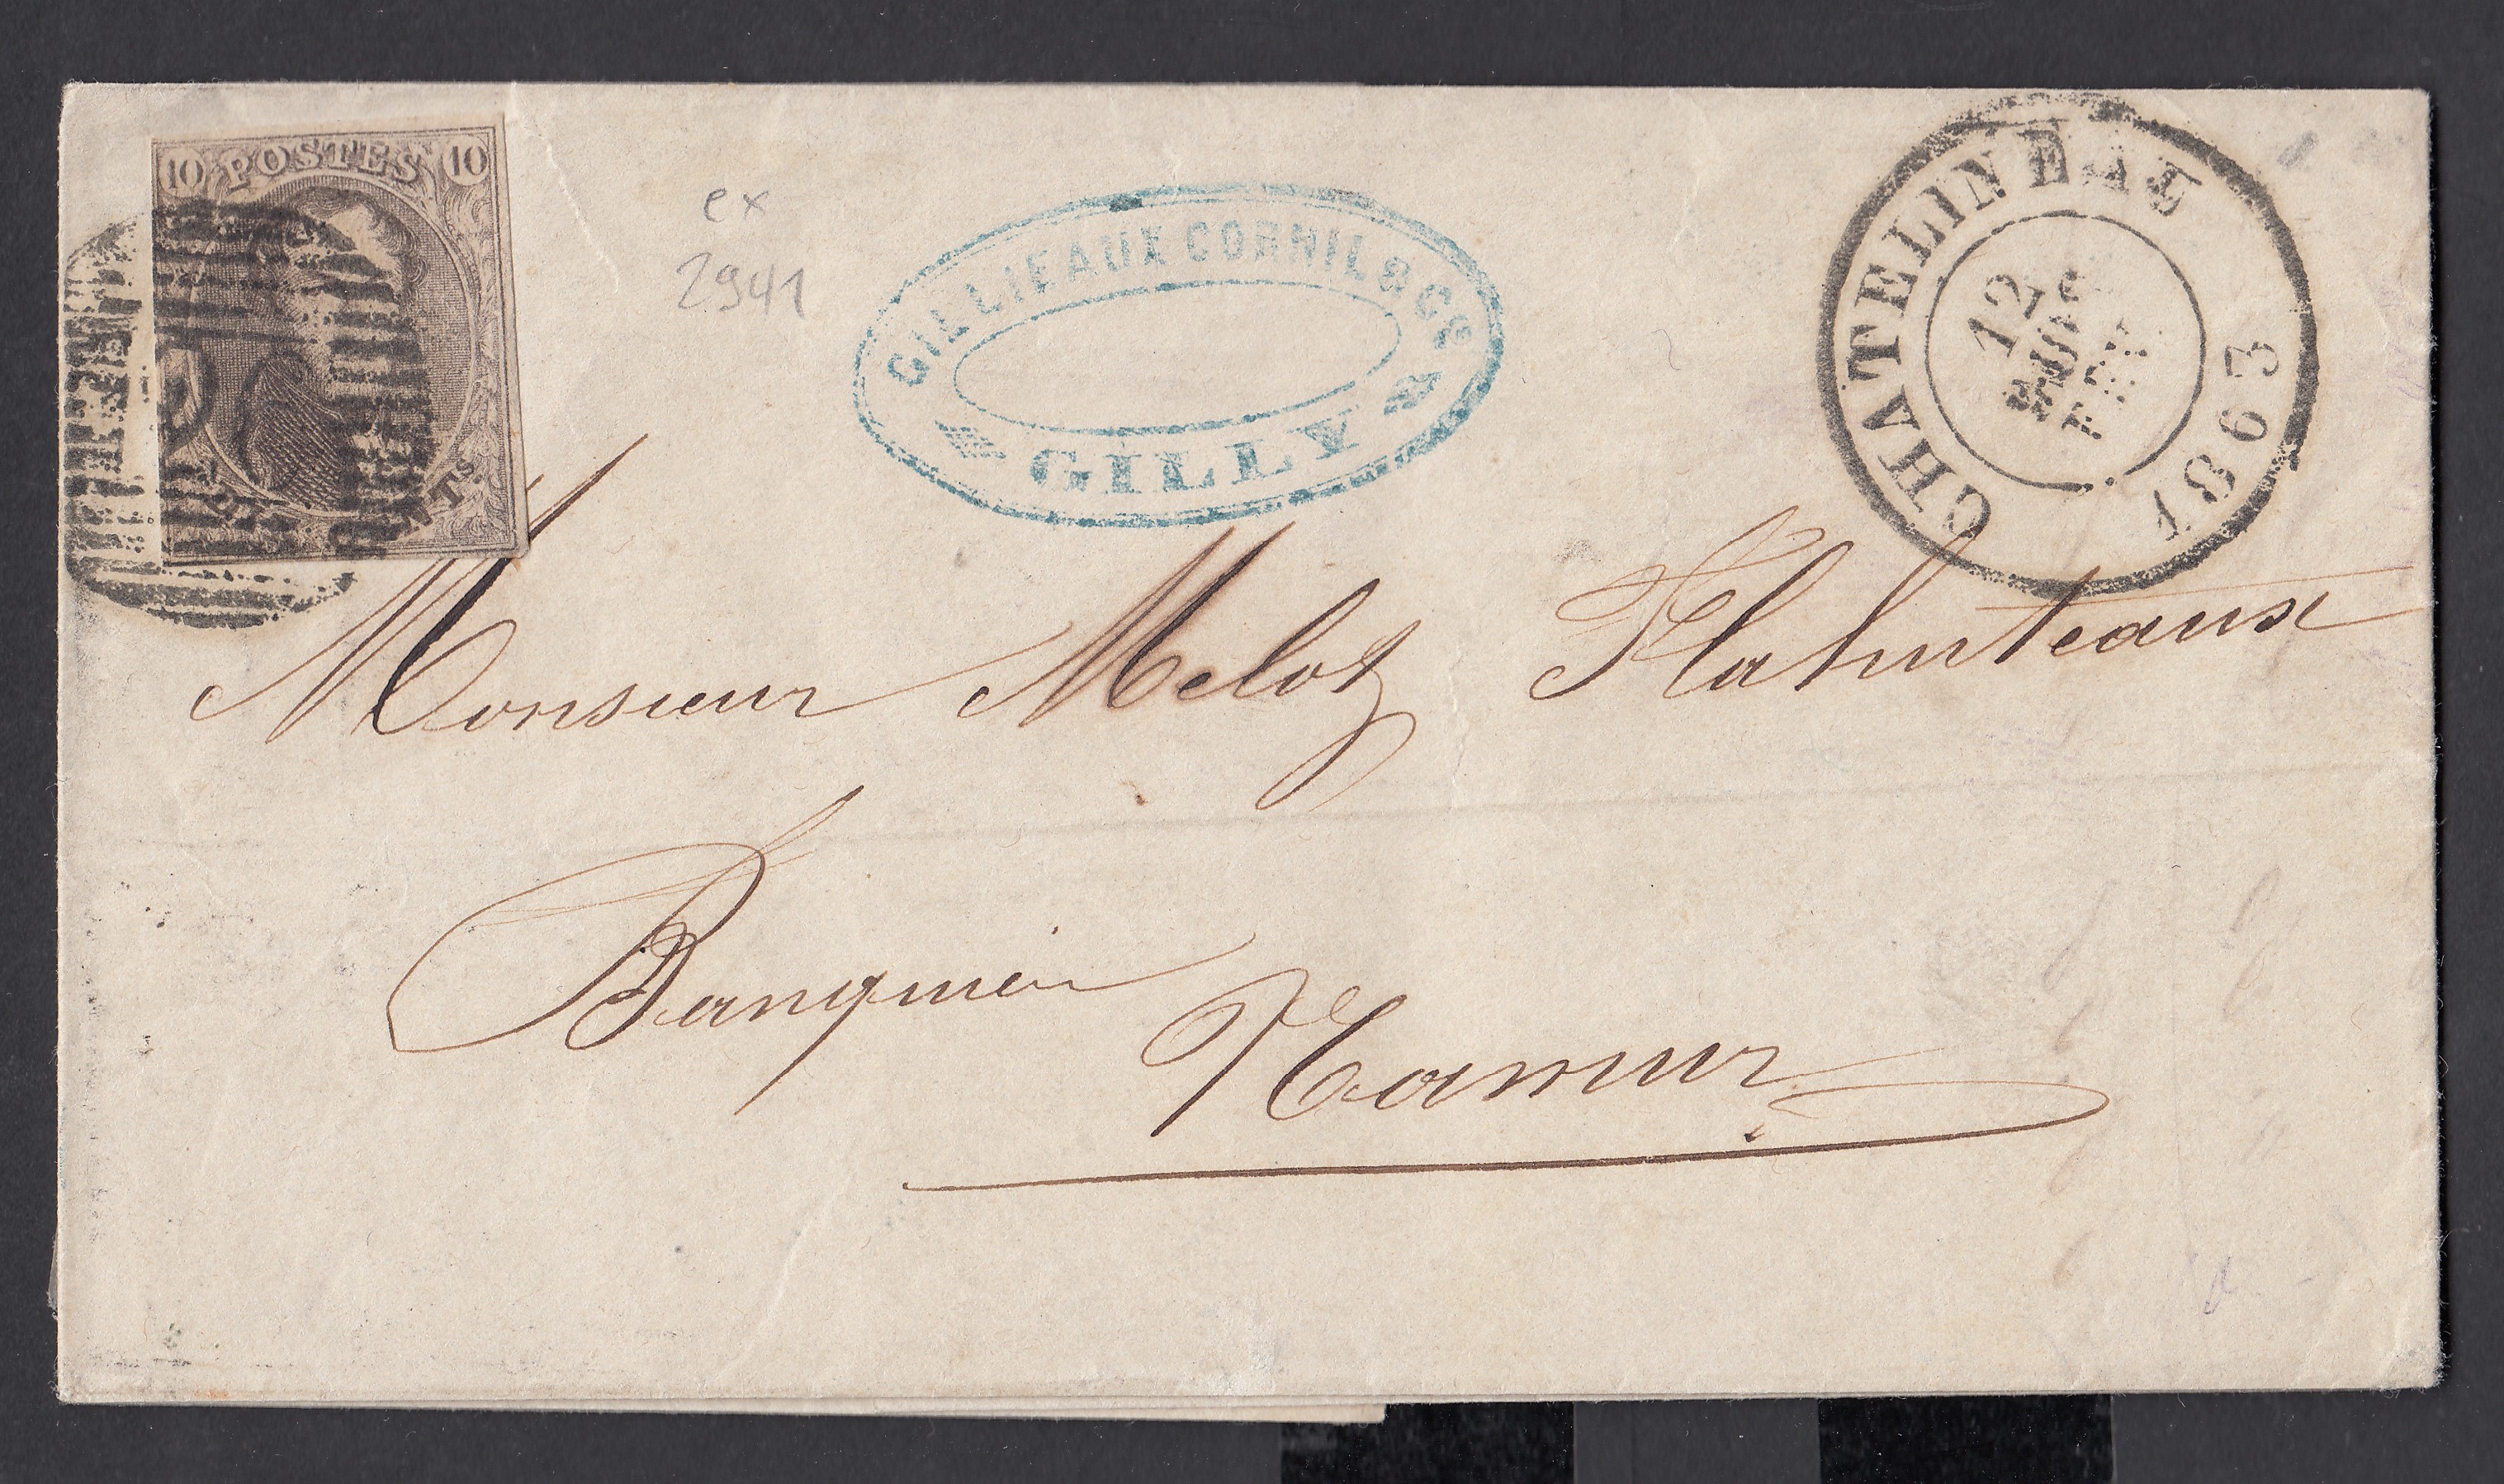 10 POSTES 10
ex
2941
GILLIEAUX CORNIL & Cie
GILLY
CHATELINEAU
12
FEV
1863
Monsieur Melot
Banquier
Namur